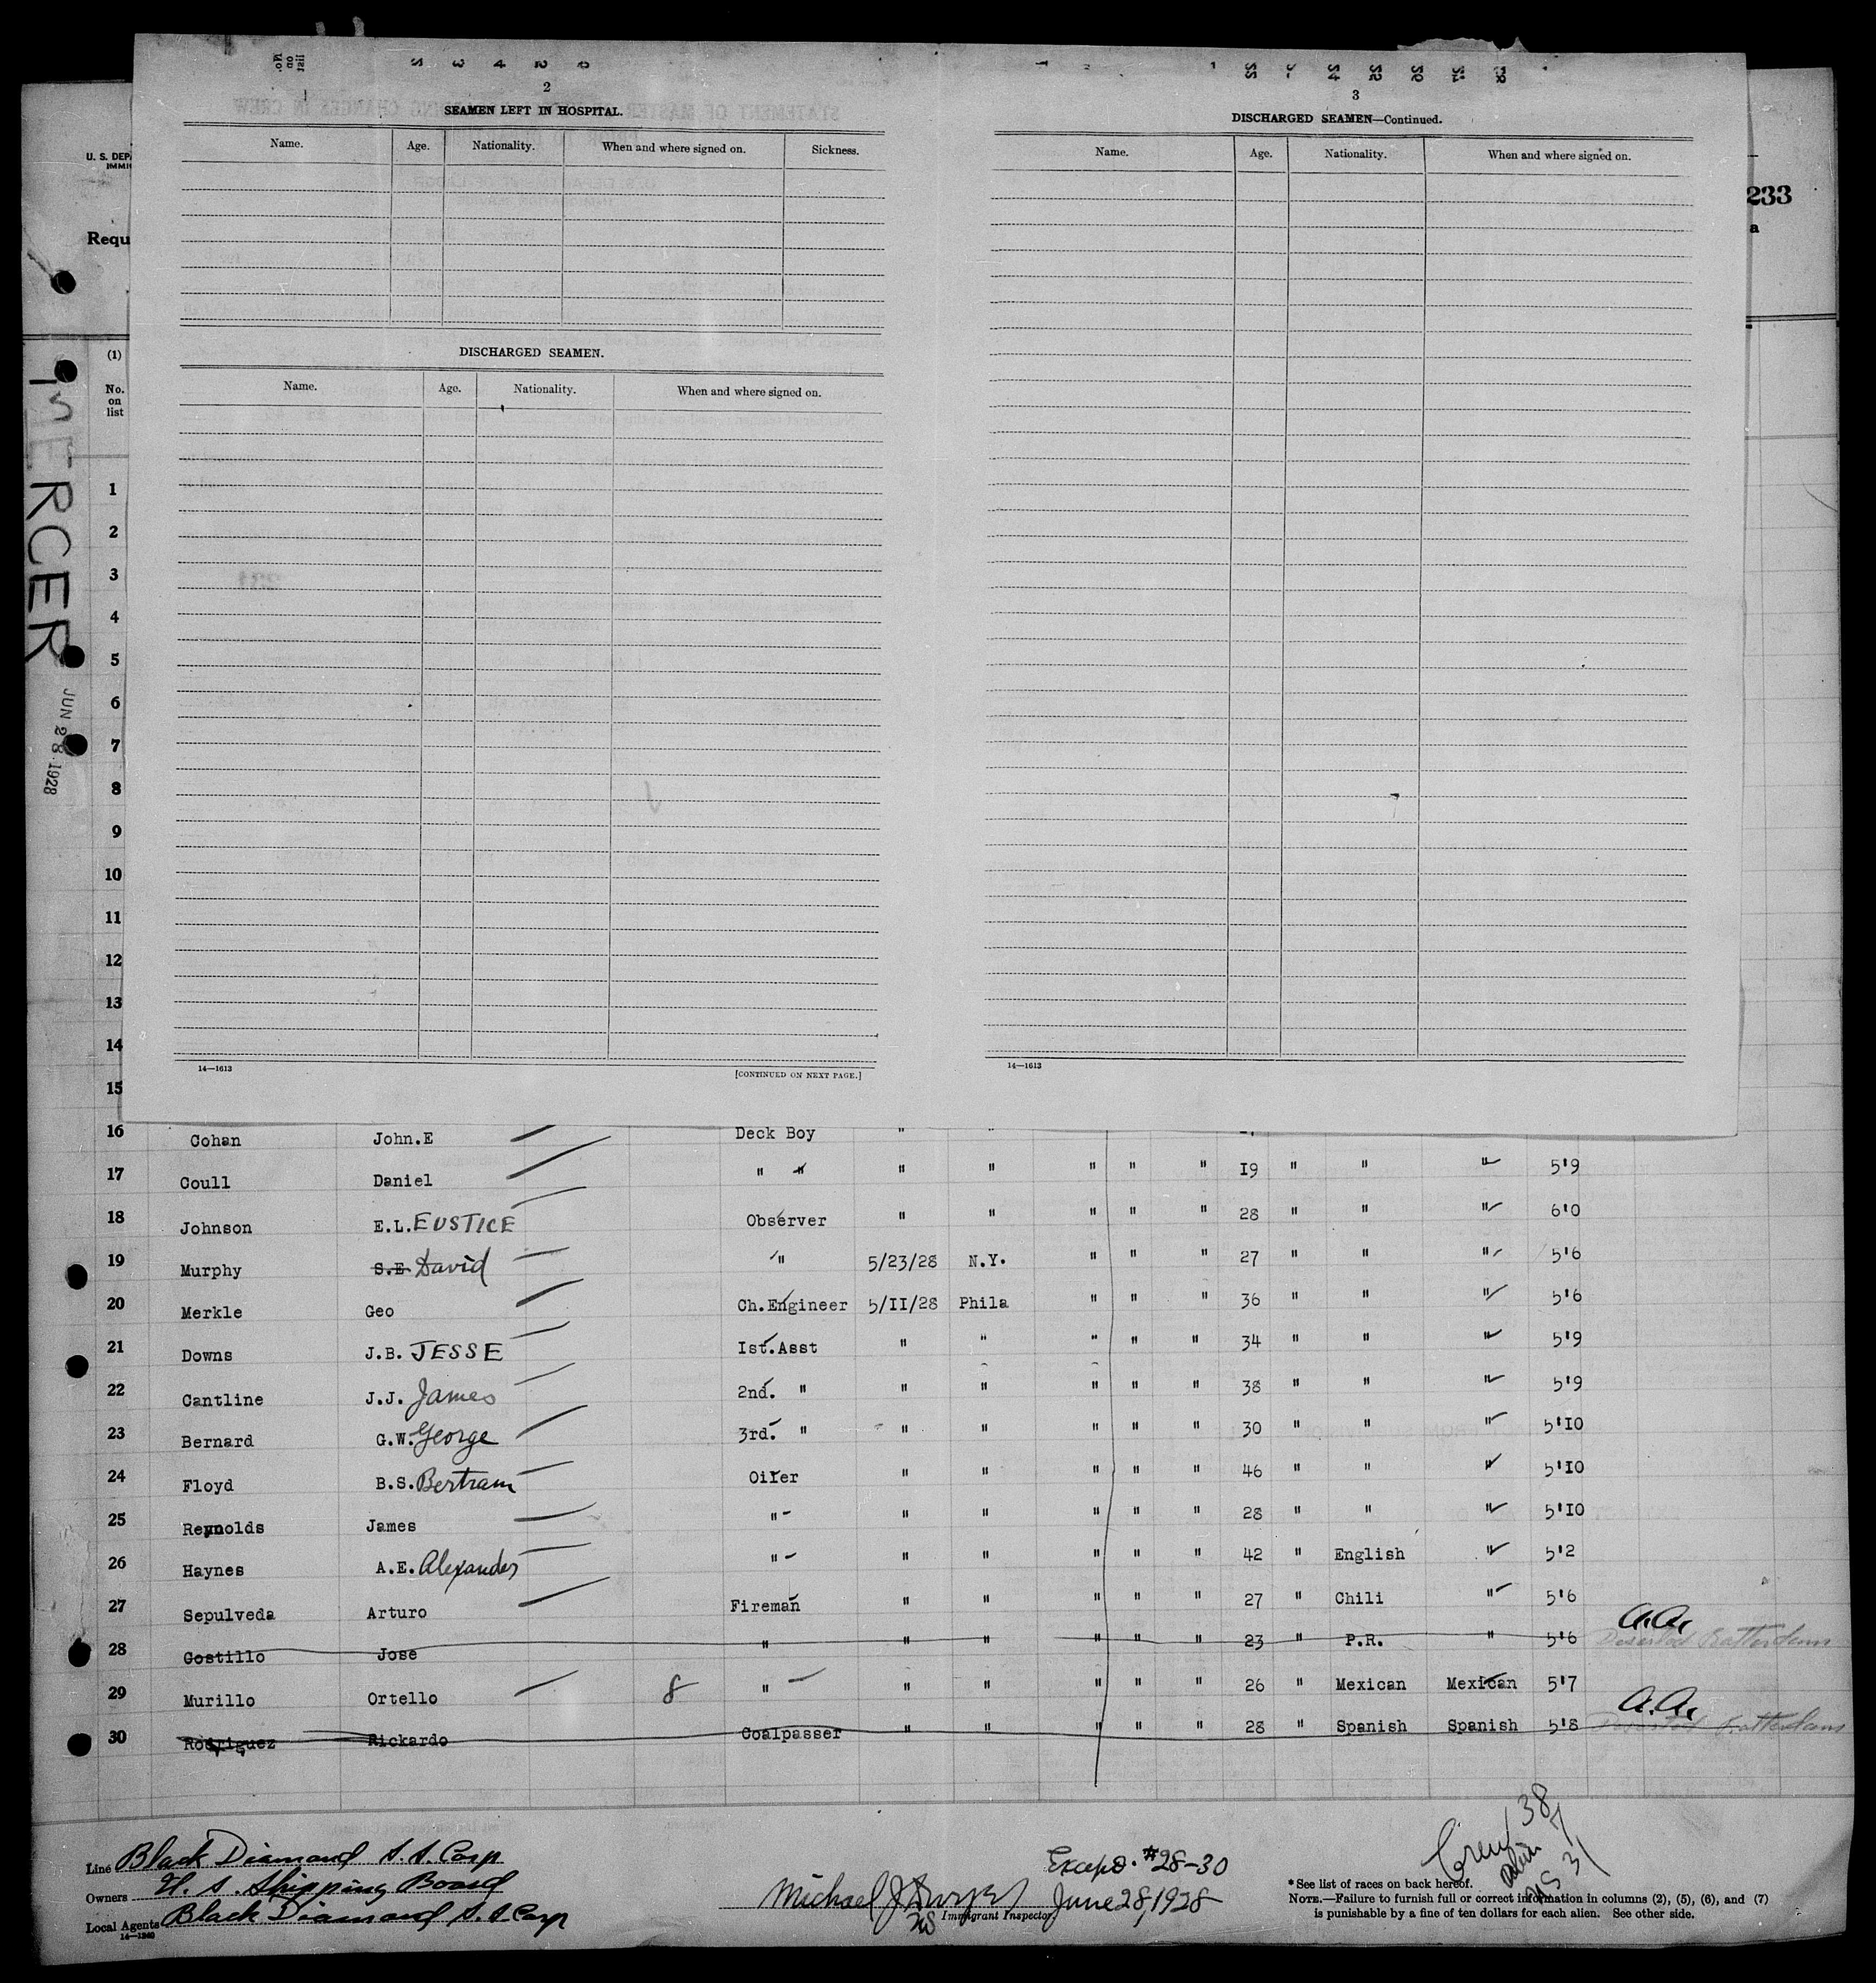 2
SEAMEN LEFT IN HOSPITAL.
Name. Age. Nationality. When and where signed on. Sickness.
DISCHARGED SEAMEN.
Name. Age. Nationality. When and where signed on.
14—1613 [CONTINUED ON NEXT PAGE.]
3
DISCHARGED SEAMEN—Continued.
Name. Age. Nationality. When and where signed on.
14—1613
U. S. DEPA
IMMI
Requ
233
a
(1)
No. on list
MERCER
JUN 28 1928
1
2
3
4
5
6
7
8
9
10
11
12
13
14
15
16 Cohan John.E Deck Boy " "
17 Coull Daniel " " " " " " " 19 " " " 5'9
18 Johnson E.L. EUSTICE Observer " " " " " 28 " " " 6'0
19 Murphy S.E David " 5/23/28 N.Y. " " " 27 " " " 5'6
20 Merkle Geo Ch.Engineer 5/II/28 Phila " " " 36 " " " 5'6
21 Downs J.B. JESSE Ist.Asst " " " " " 34 " " " 5'9
22 Cantline J.J. James 2nd. " " " " " " 38 " " " 5'9
23 Bernard G.W. George 3rd. " " " " " " 30 " " " 5'I0
24 Floyd B.S. Bertram Oiler " " " " " 46 " " " 5'I0
25 Reynolds James " " " " " " 28 " " " 5'I0
26 Haynes A.E. Alexander " " " " " " 42 " English " 5'2
27 Sepulveda Arturo Fireman " " " " " 27 " Chili " 5'6
28 Costillo Jose " " " " " " 23 " P.R. " 5'6 a.a. Deserted Rotterdam
29 Murillo Ortello 8 " " " " " " 26 " Mexican Mexican 5'7
30 Rodriguez Rickardo Coalpasser " " " " " 28 " Spanish Spanish 5'8 a.a. Deserted Rotterdam
Line Black Diamond S.S. Corp
Owners U. S. Shipping Board
Local Agents Black Diamond S.S. Corp
14—1240
Except. #28-30
Michael J. Dwyer June 28, 1928
Immigrant Inspector
Crew 38
alien 7
US 31
* See list of races on back hereof.
NOTE.—Failure to furnish full or correct information in columns (2), (5), (6), and (7)
is punishable by a fine of ten dollars for each alien. See other side.